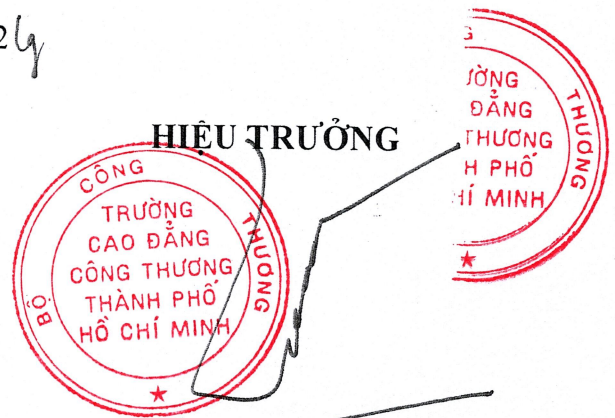 HIỆU TRƯỞNG
BỘ CÔNG THƯƠNG
TRƯỜNG
CAO ĐẲNG
CÔNG THƯƠNG
THÀNH PHỐ
HỒ CHÍ MINH
THƯƠNG
ỜNG
ĐẲNG
THƯƠNG
H PHỐ
HÍ MINH